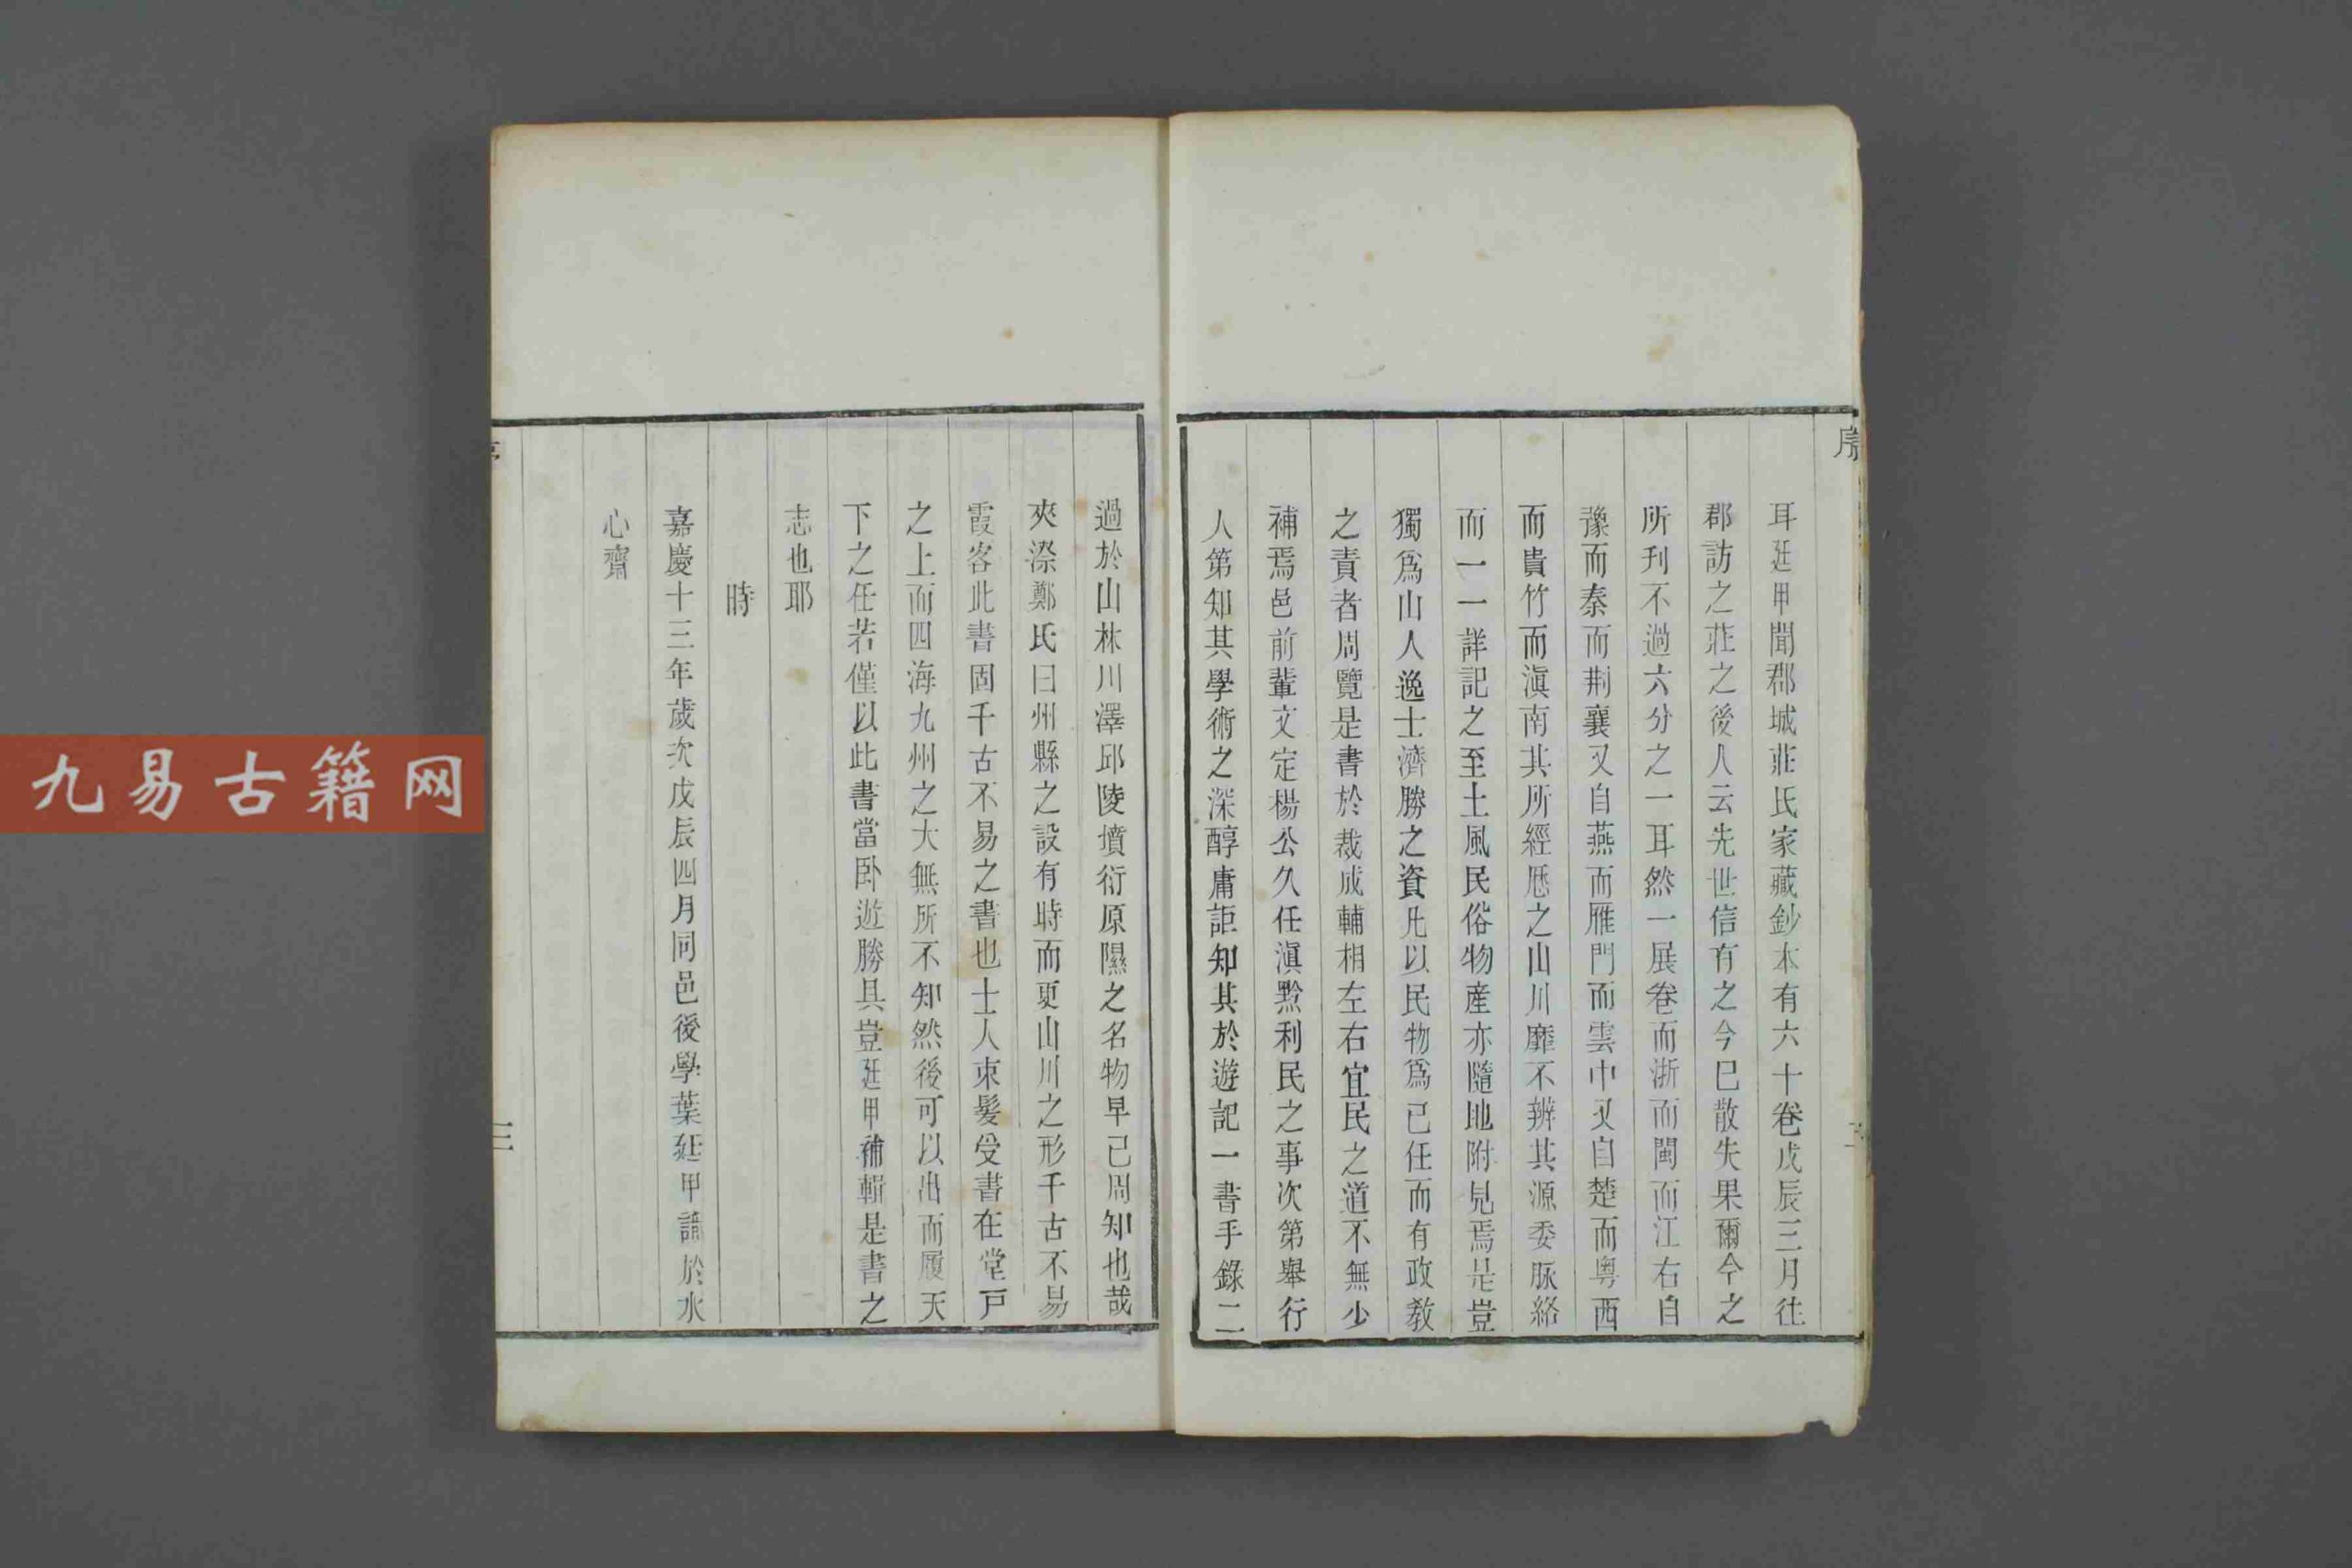 序
耳廷甲聞郡城莊氏家藏鈔本有六十卷戊辰三月往
郡訪之莊之後人云先世信有之今已散失果爾今之
所刊不過六分之一耳然一展卷而浙而閩而江右自
豫而秦而荆襄又自燕而雁門而雲中又自楚而粵西
而貴竹而滇南其所經歷之山川靡不辨其源委脈絡
而一一詳記之至土風民俗物產亦隨地附見焉是豈
獨爲山人逸士濟勝之資凡以民物爲己任而有政敎
之責者周覽是書於裁成輔相左右宜民之道不無少
補焉邑前輩文定楊公久任滇黔利民之事次第舉行
人第知其學術之深醇庸詎知其於遊記一書手錄二
過於山林川澤邱陵墳衍原隰之名物早已周知也哉
夾漈鄭氏曰州縣之設有時而更山川之形千古不易
霞客此書固千古不易之書也士人束髮受書在堂戸
之上而四海九州之大無所不知然後可以出而履天
下之任若僅以此書當卧遊勝具豈廷甲補輯是書之
志也耶
時
嘉慶十三年歲次戊辰四月同邑後學葉廷甲識於水
心齋
三
九易古籍网